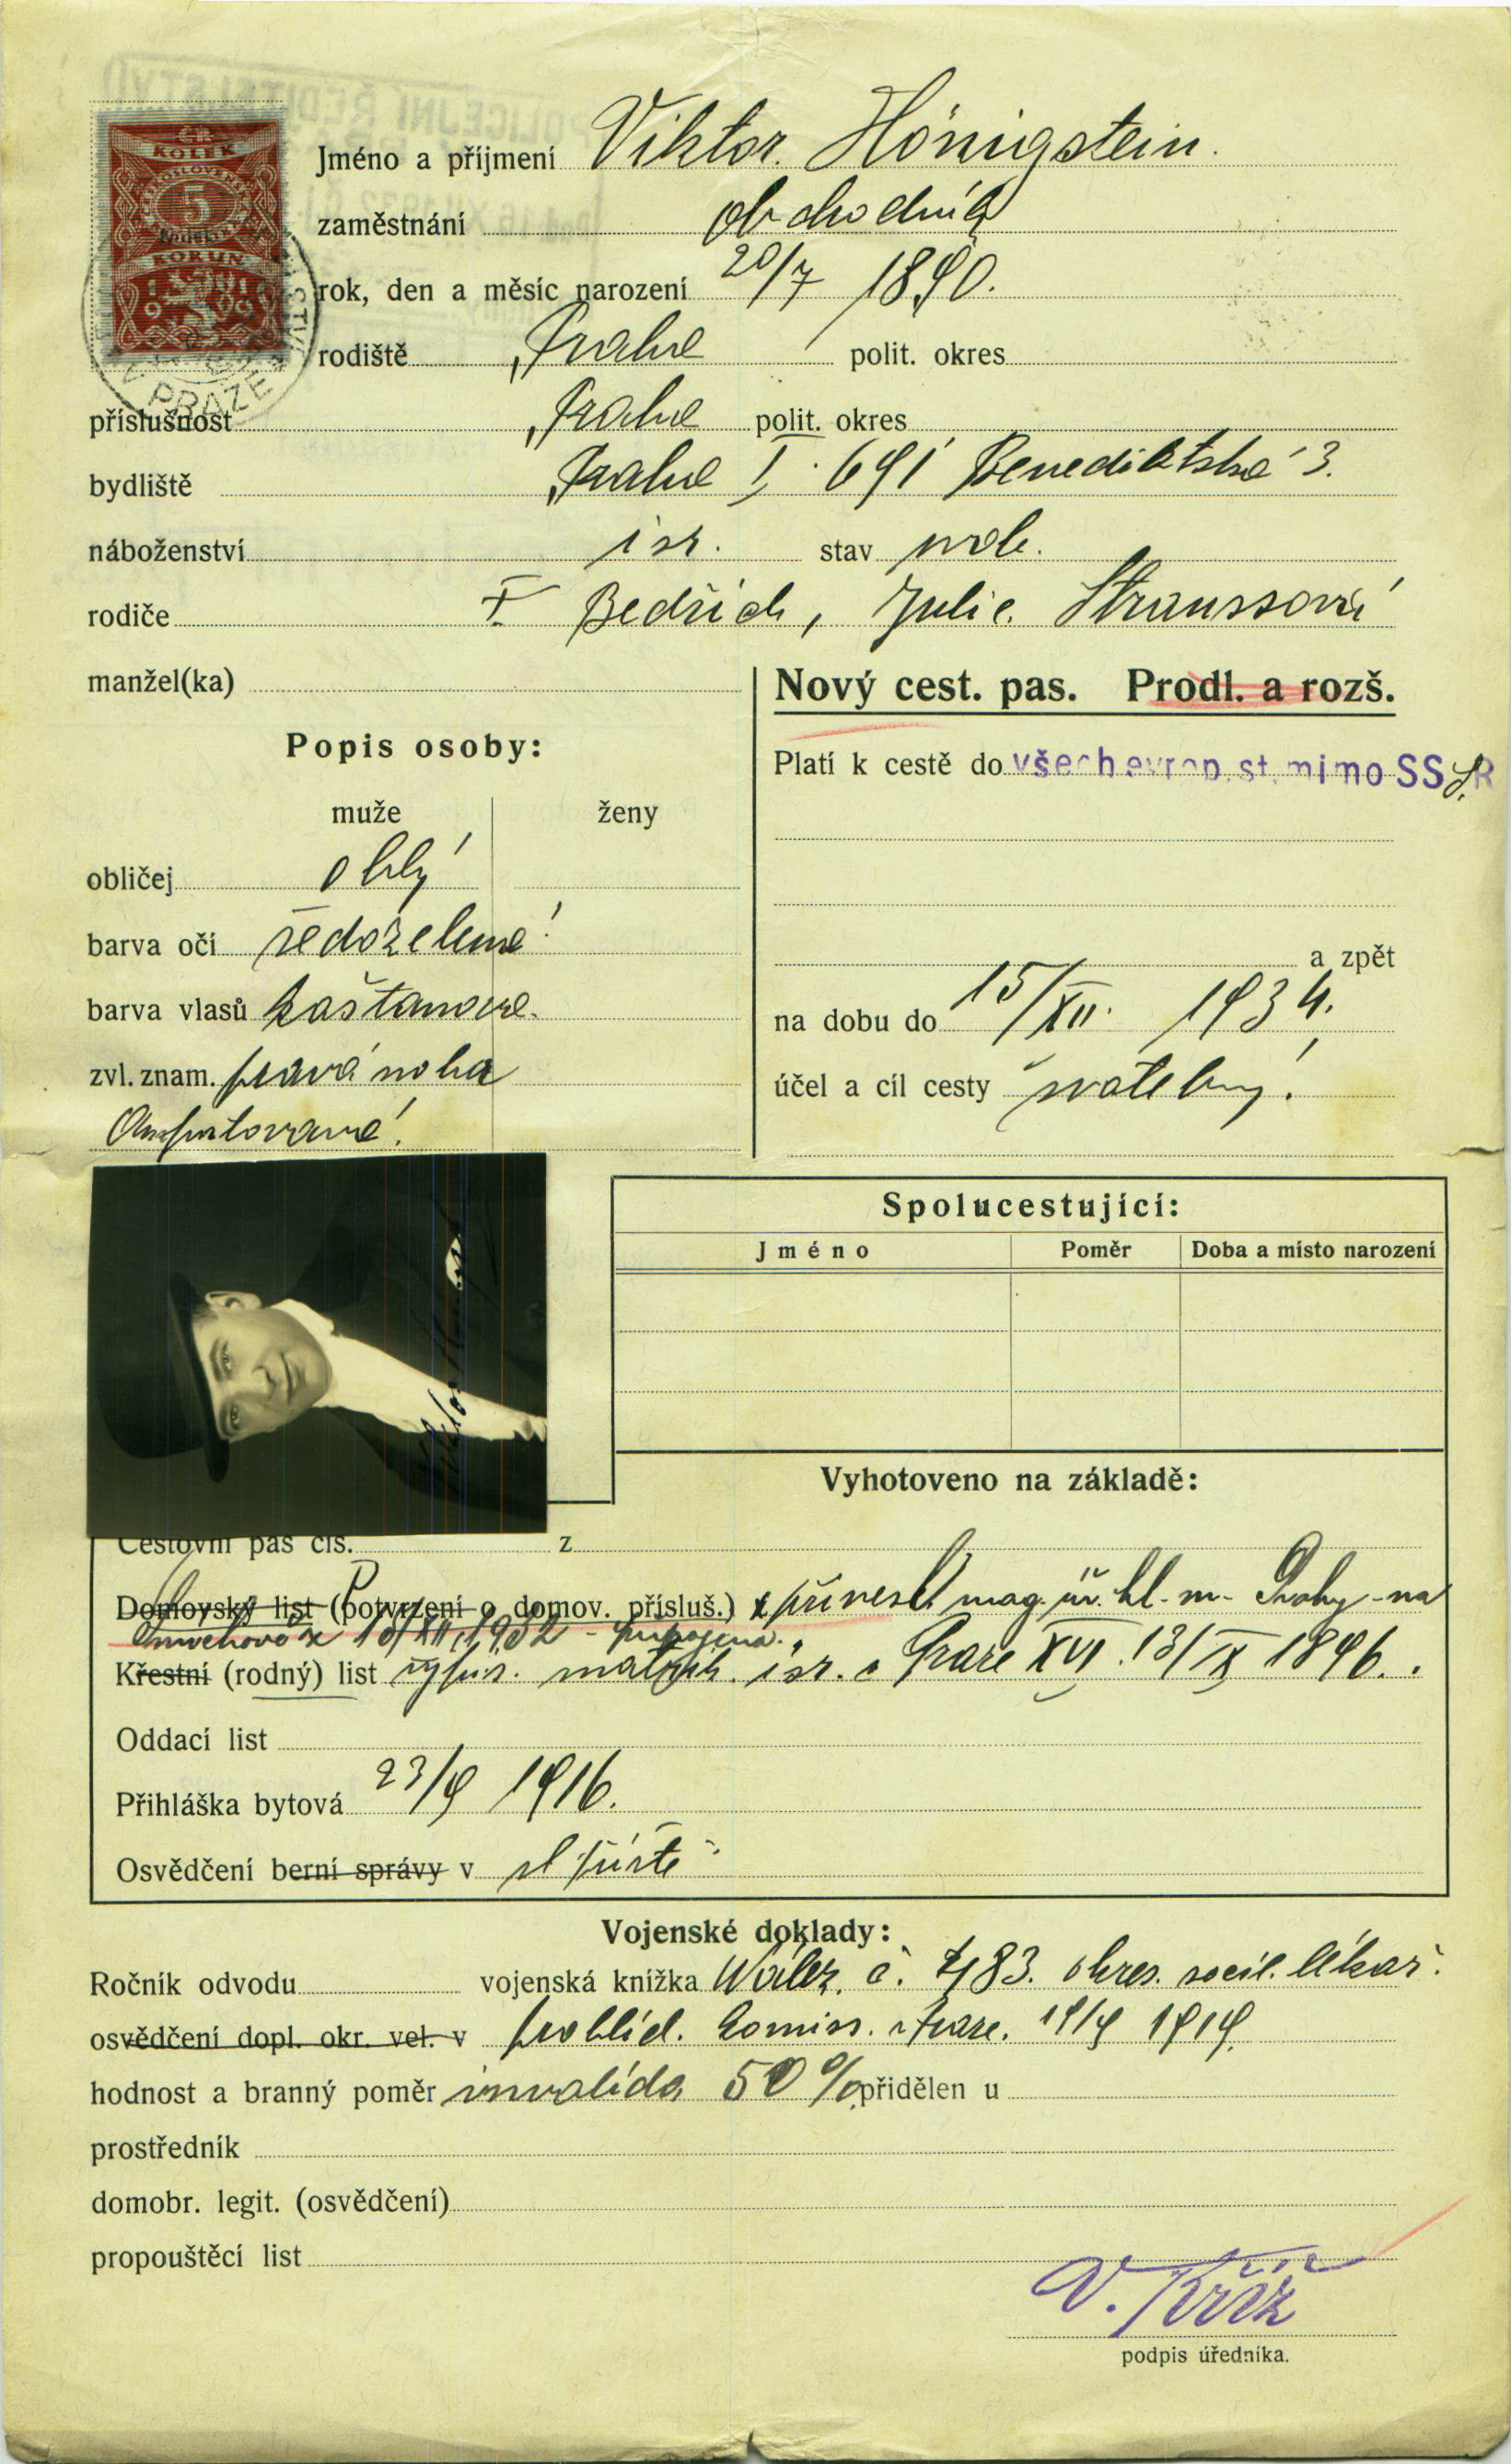 ČR
KOLEK
5
KORUN
1919
PRAZE
Jméno a příjmení Viktor Hönigstein.
zaměstnání obchodník
rok, den a měsíc narození 20/7 1890.
rodiště Praha polit. okres
příslušnost Praha polit. okres
bydliště Praha I. 691 Benediktská 3.
náboženství isr. stav svob.
rodiče Bedřich, Julie Straussová
manžel(ka)
Nový cest. pas. Prodl. a rozš.
Popis osoby:
Platí k cestě do všech evrop. st. mimo SSSR
muže ženy
obličej oblý
barva očí šedozelené
a zpět
barva vlasů kaštanové
na dobu do 15/XII. 1934.
zvl. znam. pravá noha
amputovaná!
účel a cíl cesty svatební
Spolucestující:
Jméno Poměr Doba a místo narození
Vyhotoveno na základě:
Cestovní pas čís. z
Domovský list (Potvrzení o domov. přísluš.) přinesl mag. úř. hl. m. Prahy na
13/XII. 1932 - připojena.
Křestní (rodný) list výpis. matrik. isr. v Praze XVI. 13/IX 1896.
Oddací list
Přihláška bytová 23/9 1916.
Osvědčení berní správy v zjiště
Vojenské doklady:
Ročník odvodu vojenská knížka Vález. č. 4183. okres. sociál. lékař.
osvědčení dopl. okr. vel. v prohlíd. komiss. v Praze. 19/9 1919.
hodnost a branný poměr invalida 50% přidělen u
prostředník
domobr. legit. (osvědčení)
propouštěcí list
V. Kříž
podpis úředníka.